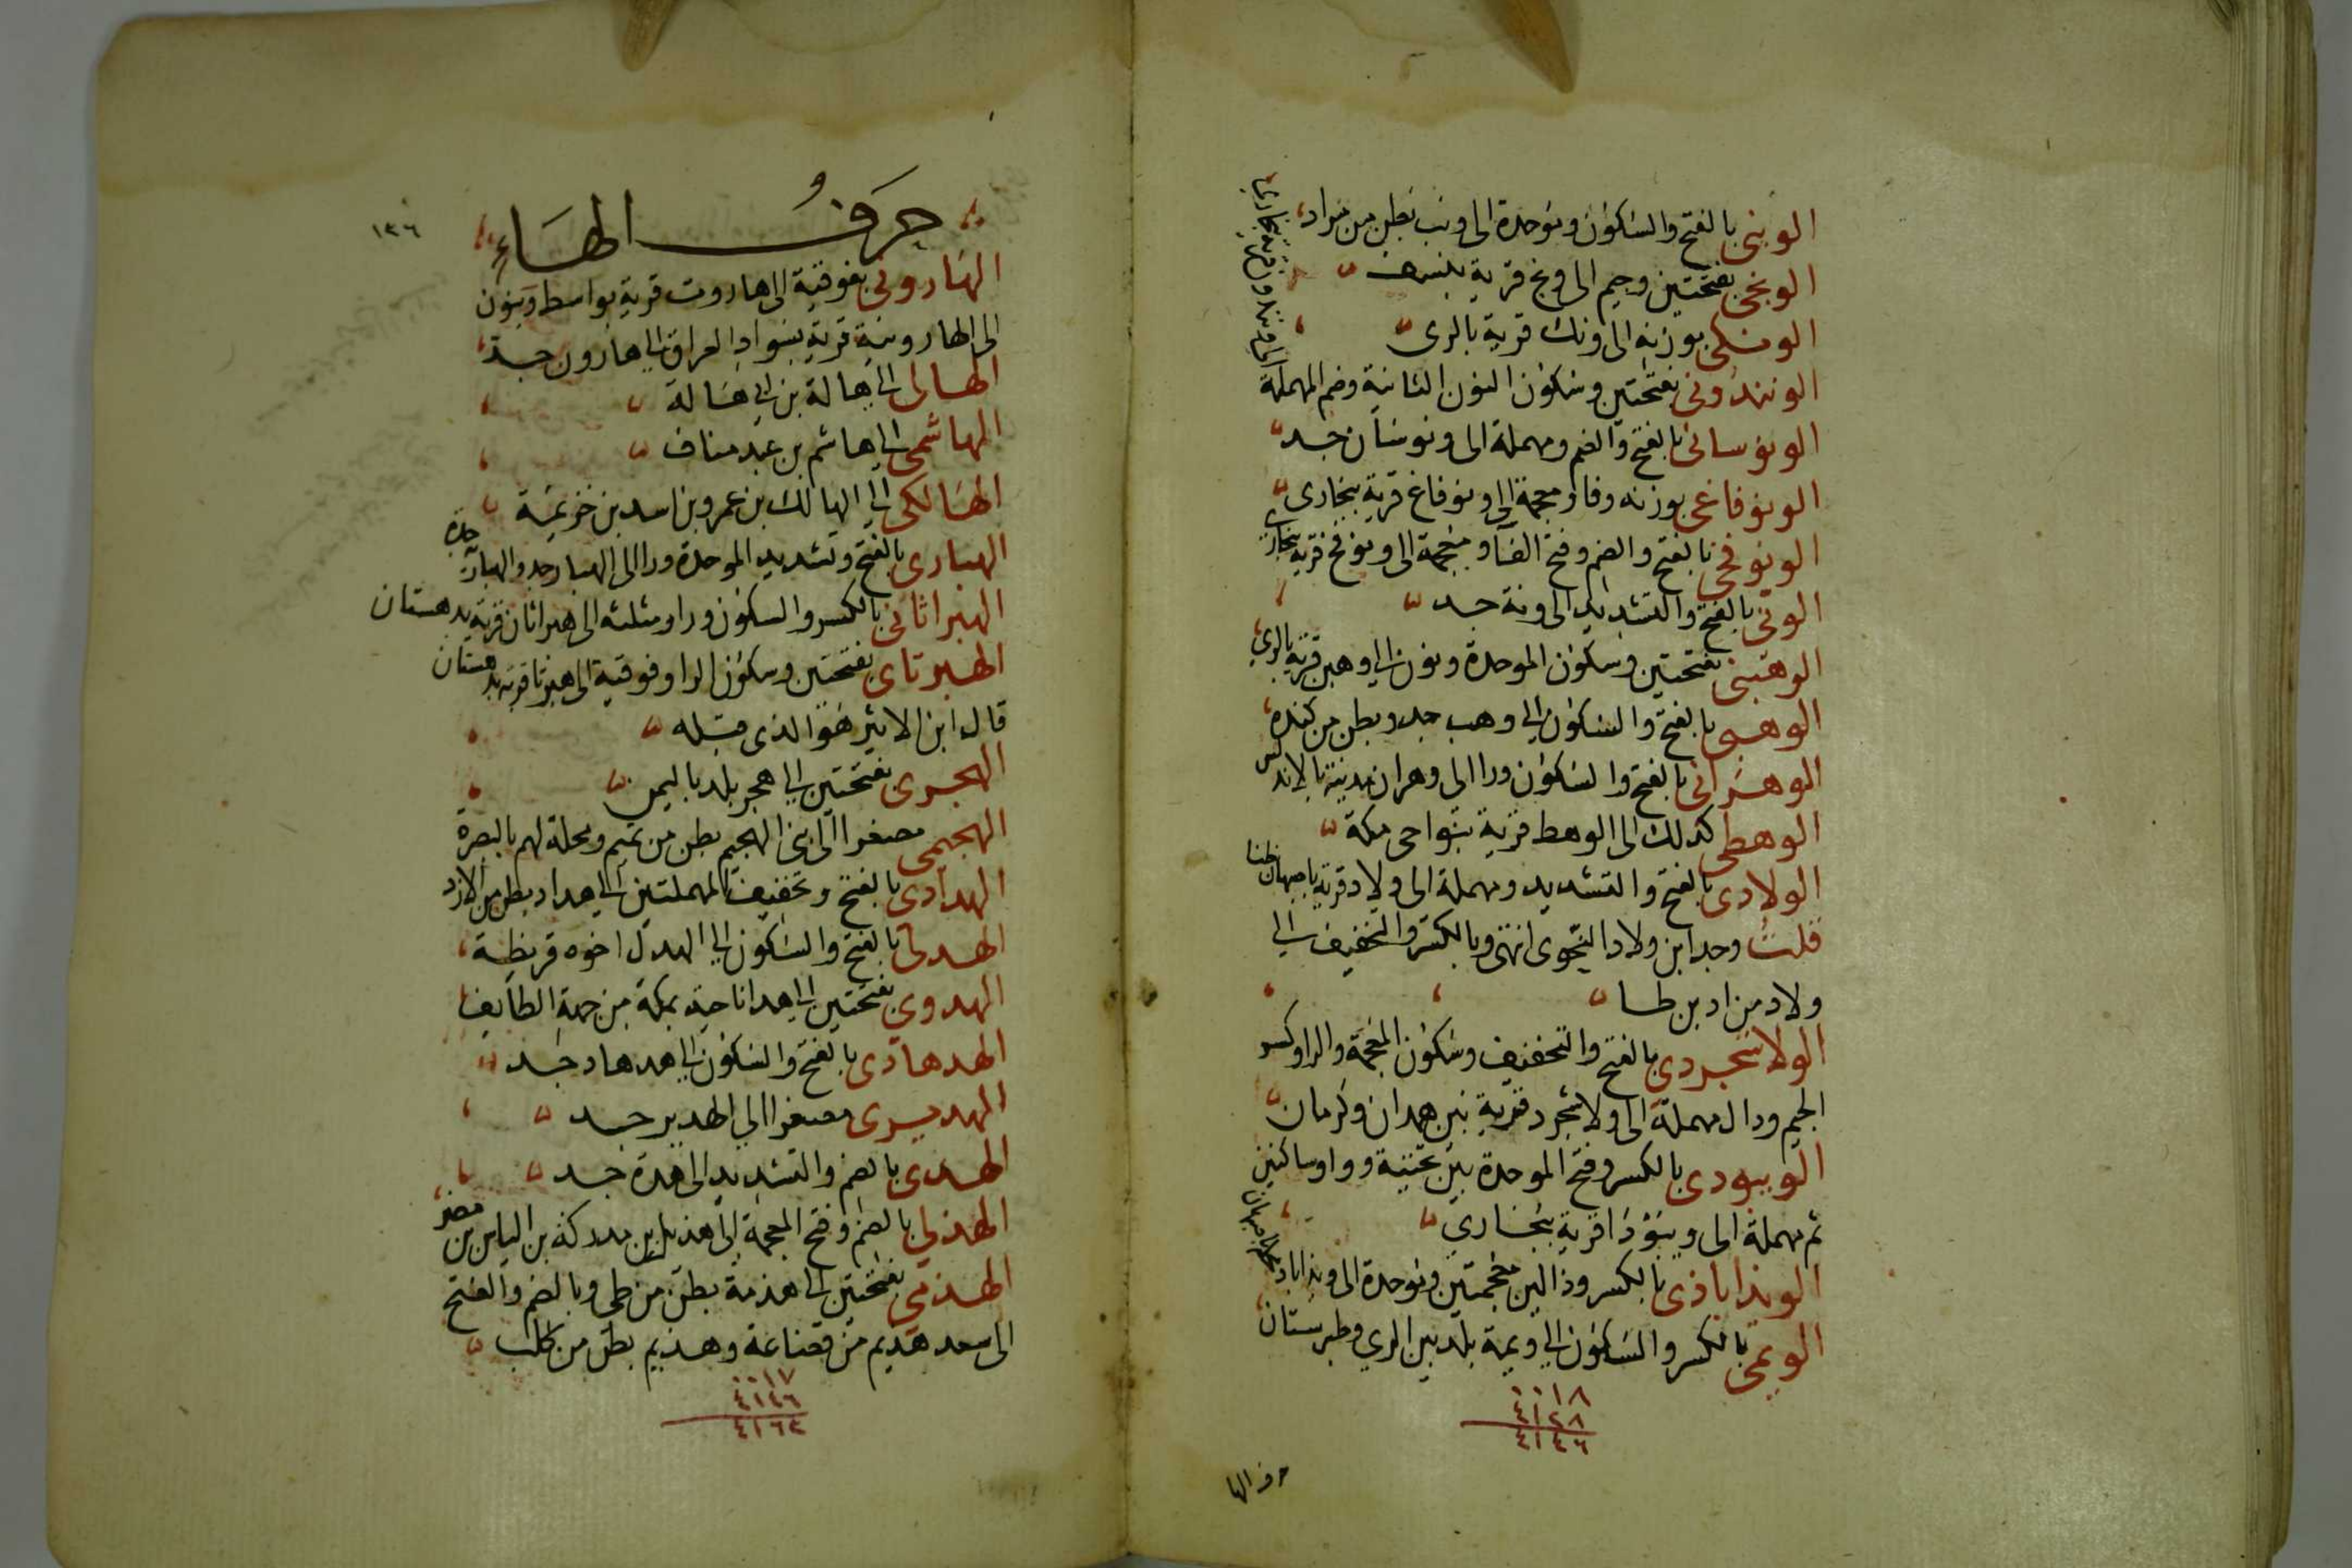 الونبى بالفتح والسكون وموحدة الى ونب بطن من مراد
الونجى بفتحتين وجيم الى ونج قرية بنسف
الونكى بوزنه الى ونك قرية بالرى
الونندونى بفتحتين وسكون النون الثانية وضم المهملة
الى ونندون قرية ببخارى
الونوسانى بالفتح والضم ومهملة الى ونوسان جد
الونوفاغى بوزنه وفا ومعجمة الى ونوفاغ قرية ببخارى
الونوفخى بالفتح والضم وفتح الفا ومعجمة الى ونوفخ قرية ببخارى
الونى بالفتح والتشديد الى ونة جد
الوهبنى بفتحتين وسكون الموحدة ونون الى وهبن قرية بالرى
الوهبى بالفتح والسكون الى وهب جد وبطن من كندة
الوهرانى بالفتح والسكون ورا الى وهران مدينة بالاندلس
الوهطى كذلك الى الوهط قرية بنواحى مكة
الولادى بالفتح والتشديد ومهملة الى ولاد قرية باصبهان ظنا
قلت وجد ابن ولاد النحوى انتهى وبالكسر والتخفيف الى
ولاد من اد بن طا
الولاشجردى بالفتح والتخفيف وسكون المعجمة والرا وكسر
الجيم ودال مهملة الى ولاشجرد قرية بين همدان وكرمان
الويبودى بالكسر وفتح الموحدة بين تحتية وواو ساكنين
ثم مهملة الى ويبودا قرية ببخارى
الويذاباذى بالكسر وذالين معجمتين وموحدة الى ويذاباد محلة باصبهان
الويمى بالكسر والسكون الى ويمة بلد بين الرى وطبرستان
٠٠١٨
٤١٢٨
٤١٤٦
حرف الها
١٣٦
حرف الهاء
الهاروتى بفوقية الى هاروت قرية بواسط وبنون
الى الهارونية قرية بسواد العراق والى هارون جد
الهالى الى هالة بن ابى هالة
الهاشمى الى هاشم بن عبد مناف
الهالكى الى الهالك بن عمرو بن اسد بن خزيمة
الهبارى بالفتح وتشديد الموحدة ورا الى الهبار جد والهبارية جدة
الهبراثانى بالكسر والسكون ورا ومثلثه الى هبراثان قرية بدهستان
الهبرتاى بفتحتين وسكون الرا وفوقية الى هبرتا قرية بدهستان
قال ابن الاثير هو الذى قبله
الهجرى بفتحتين الى هجر بلد باليمن
الهجيمى مصغرا الى بنى الهجيم بطن من تميم ومحلة لهم بالبصرة
الهدادى بالفتح وتخفيف المهملتين الى هداد بطن من الازد
الهدلى بالفتح والسكون الى الهدل اخوه قريظة
الهدوى بفتحتين الى هدا ناحية بمكة من جهة الطايف
الهدهادى بالفتح والسكون الى هدهاد جد
الهديرى مصغرا الى الهدير جد
الهدى بالضم والتشديد الى هدة جد
الهذلى بالضم وفتح المعجمة الى هذيل بن مدركة بن الياس بن مضر
الهذمى بفتحتين الى هذمة بطن من طى وبالضم والفتح
الى سعد هذيم من قضاعة وهذيم بطن من كلب
٠٠١٧
٤١٤٦
٤١٦٣